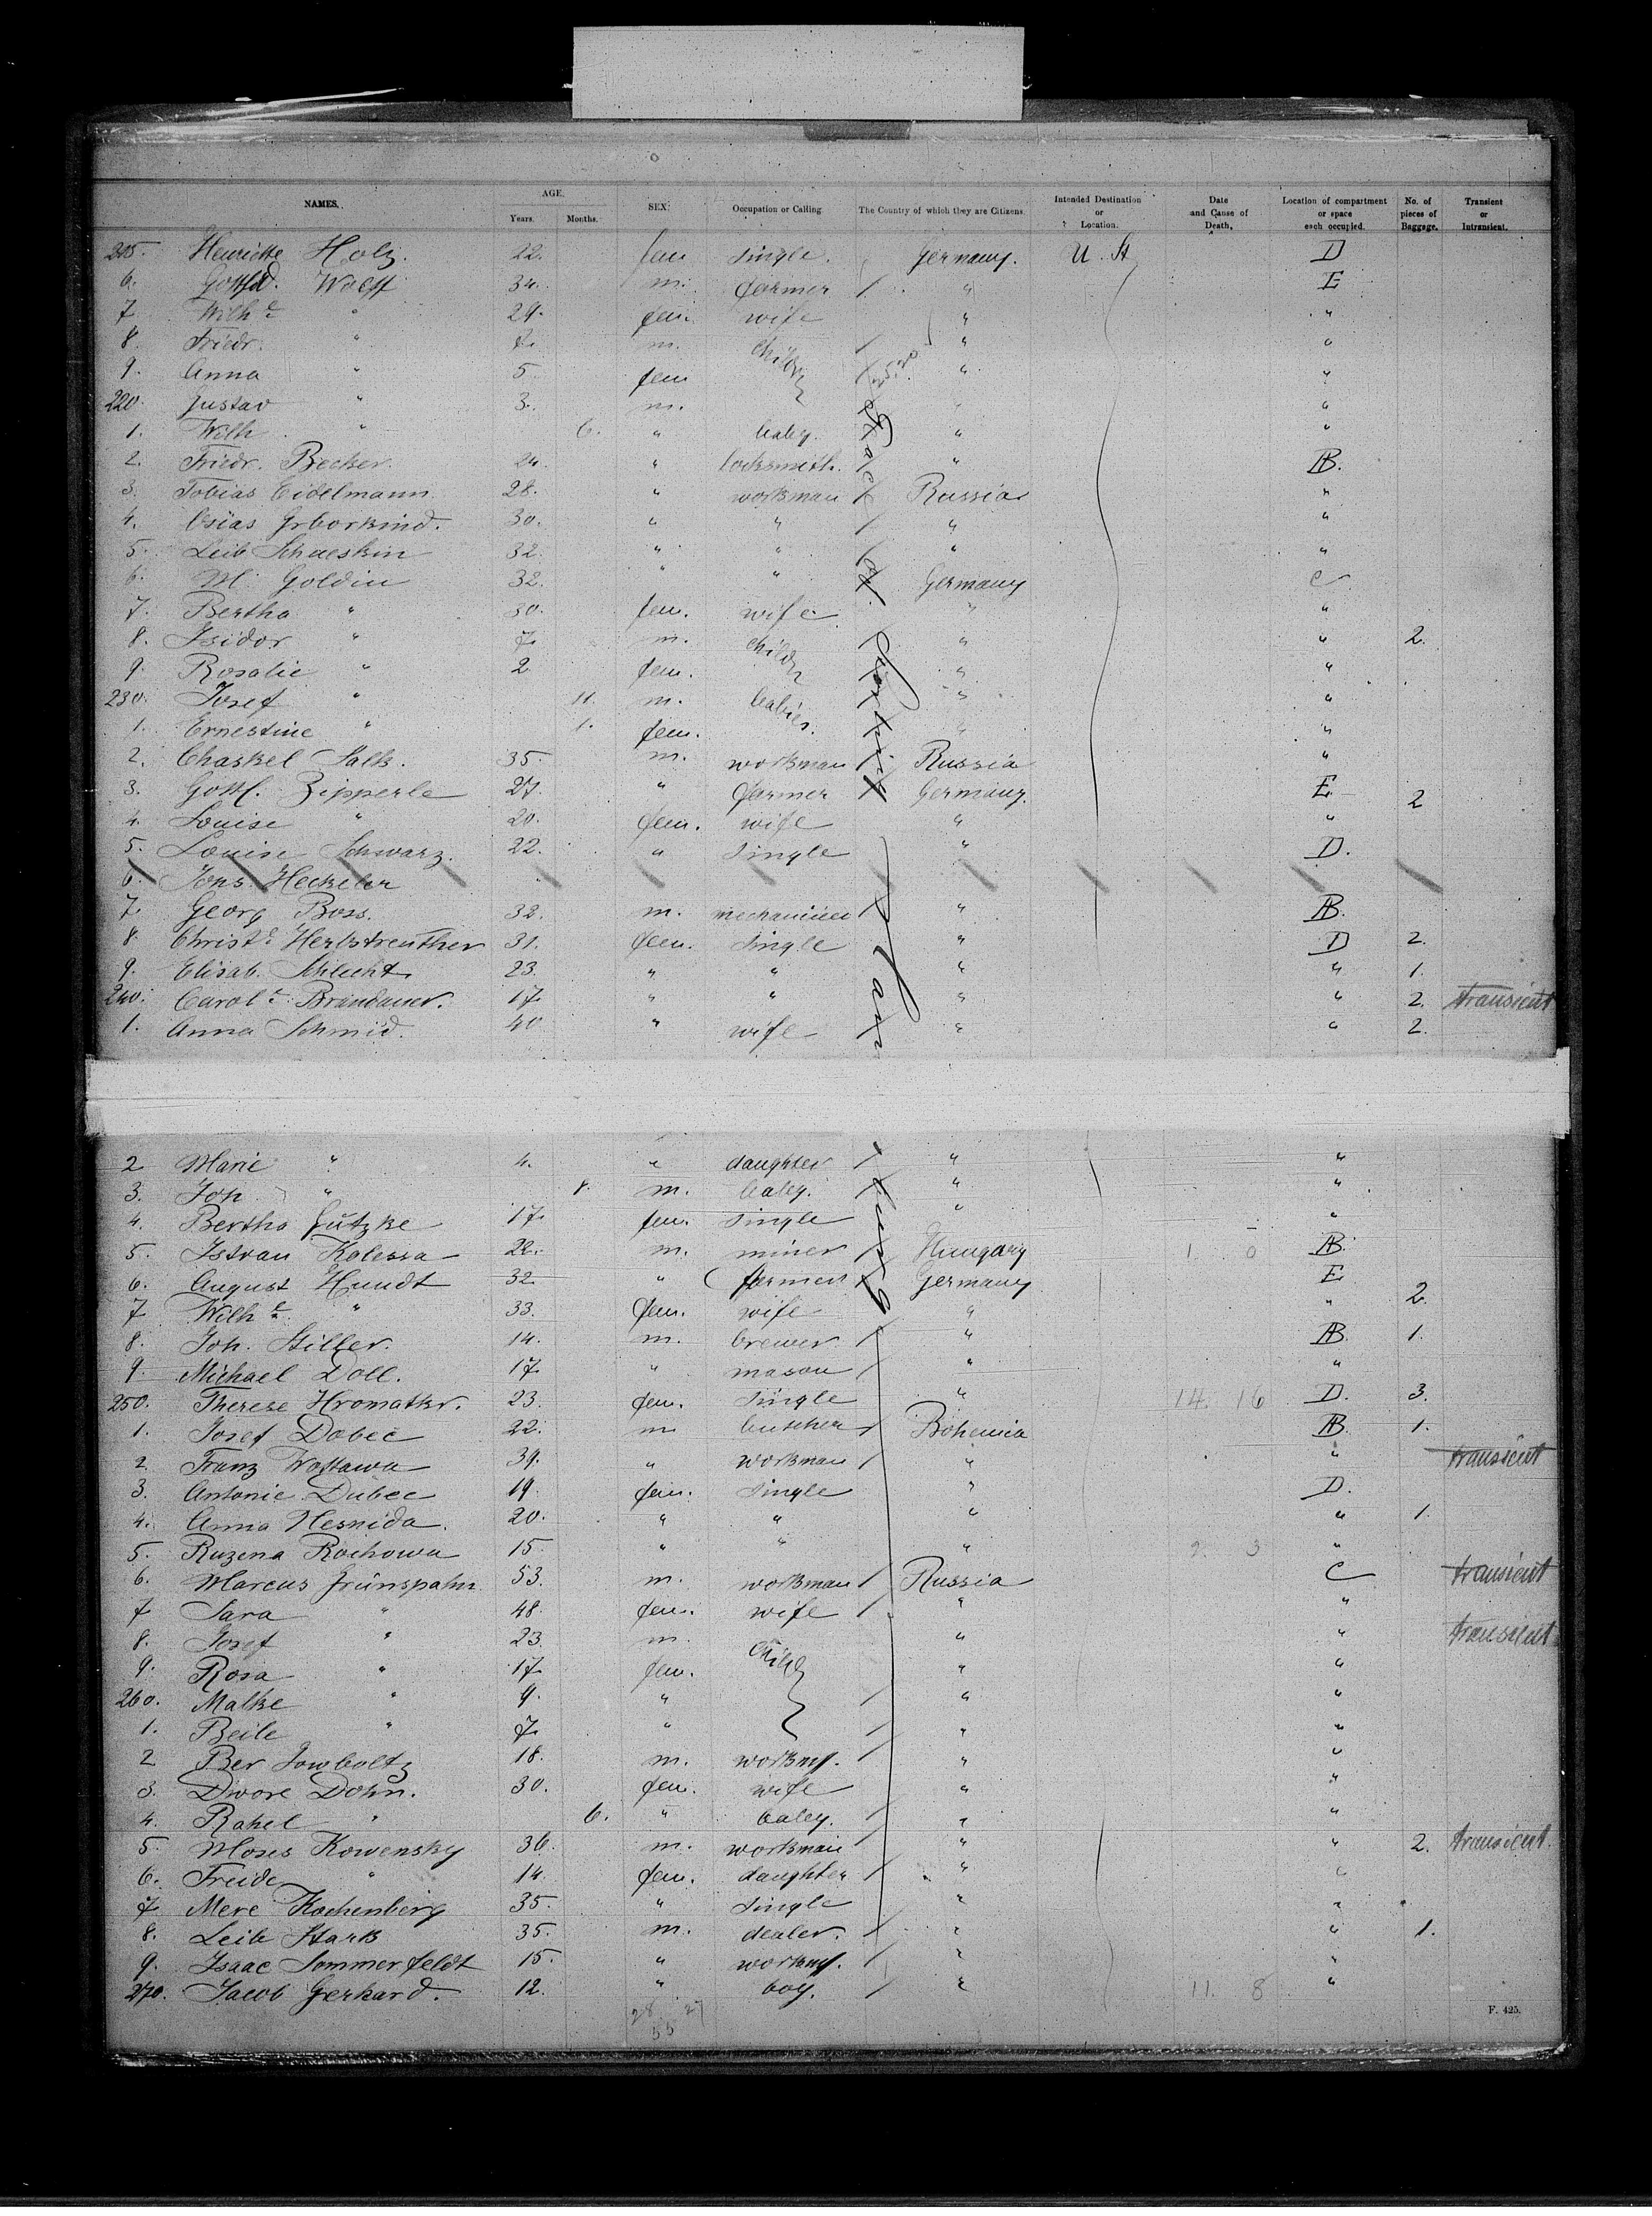 NAMES. AGE. SEX. Occupation or Calling The Country of which they are Citizens. Intended Destination or Location. Date and Cause of Death, Location of compartment or space each occupied. No. of pieces of Baggage. Transient or Intransient.
Years. Months.
215. Henriette Holz. 22. fem single. Germany. U. St D
6. Wolff 34. m. farmer " E
7 Wilhe " 29. fem. wife " "
8. Friedr. " 7. m. child " "
9. Anna " 5 fem " "
220. Gustav " 3. m. " "
1. Wilh. " 6. " baby. " "
2. Friedr. Becker. 24. " locksmith. " AB.
3. Tobias Eidelmann 28. " workman Russia "
4. Osias 30. " " " "
5. Leib 32. " " " "
6. M. Goldin 32. " " Germany C
7. Bertha " 30. fem. wife " "
8. Isidor " 7 m. child " " 2.
9. Rosalie " 2 fem. " "
230. Josef " 11. m. babies. " "
1. Ernestine " 1. fem. " "
2. Chaskel Salk. 35. m. workman Russia "
3. Gottl. Zipperle 27. " farmer Germany. E. 2
4. Louise " 20. fem. wife " "
5. Louise Schwarz. 22. " single " D.
6. Heckeler
7. Georg Boss. 32. m. " AB.
8. Christe Herbstreuther 31. fem. single " D 2.
9. Elisab. Schlecht 23. " " " " 1.
240. Carole Brandauer. 17 " " " " 2. transient
1. Anna Schmid. 40 " wife " " 2.
2 Marie " 4. " daughter " "
3. Joh. " 8. m. baby. " "
4. Bertha Gützke 17. fem. single " "
5. Istvan Kolessa 22. m. miner Hungary 1. 0 AB.
6. August Hundt 32. " farmer Germany E
7 Wilhe " 33. fem. wife " " 2.
8. Joh. Stiller. 14. m. brewer " AB. 1.
9. Michael Doll. 17 " mason " "
250. Therese Hromatkr. 23. fem. single " 14. 16 D. 3.
1. Josef Dobec 22. m butcher Bohemia AB. 1.
2. Franz Wottawa 39. " workman " " transient
3. Antonie Dubec 19. fem. single " D.
4. Anna Nesnida. 20. " " " " 1.
5. Ruzena Rochowa 15. " " " 2. 3 "
6. Marcus Grünspahn 53. m. workman Russia C transient
7 Sara " 48. fem. wife " "
8. Josef " 23. m. child " " transient
9. Rosa " 17 fem. " "
260. Malke " 9. " " "
1. Beile " 7. " " "
2 Ber 18. m. " "
3. Dwore Dohn. 30. fem. wife " "
4. Rahel " 6. " baby. " "
5. Moses Kowensky 36. m. workman " " 2. transient.
6. Freide " 14. fem. daughter " "
7 Mere Kachenberg 35. " single " "
8. Leib Stark 35. m. dealer. " " 1.
9. Isaac Sommerfeldt 15. " " "
270. Jacob Gerhard. 12. " boy. " 11. 8 "
28 27
55
F. 425.